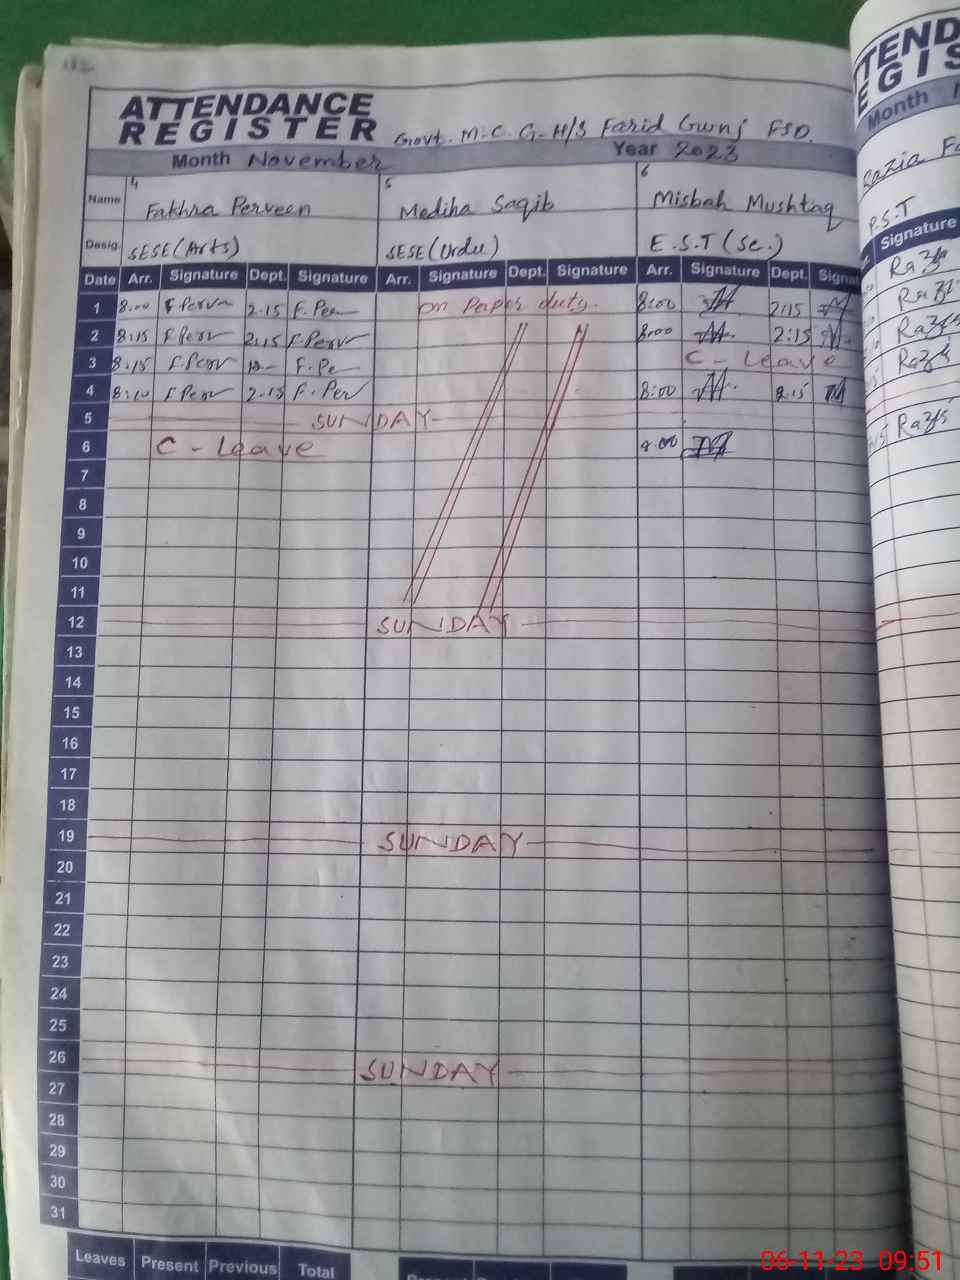 ATTENDANCE
REGISTER Govt. M.C. G-H/S Farid Gunj FSD.
Month November Year 2023
4 5 6
Name Fakhra Perveen Mediha Saqib Misbah Mushtaq
Desig. SESE (Arts) SESE (Urdu) E.S.T (Sc.)
Date Arr. Signature Dept. Signature Arr. Signature Dept. Signature Arr. Signature Dept. Signa
1 8:00 2:15 F.Per on Paper duty. 8:00 2:15
2 8:15 2:15 8:00 2:15
3 8:15 F.Pe C - Leave
4 8:10 2:15 F.Per 8:00
5 SUNDAY
6 C - Leave 8:00
7
8
9
10
11
12 SUNDAY
13
14
15
16
17
18
19 SUNDAY
20
21
22
23
24
25
26 SUNDAY
27
28
29
30
31
Leaves Present Previous Total
TEND
EGIS
Month
Razia Fa
P.S.T
Signature
06-11-23 09:51